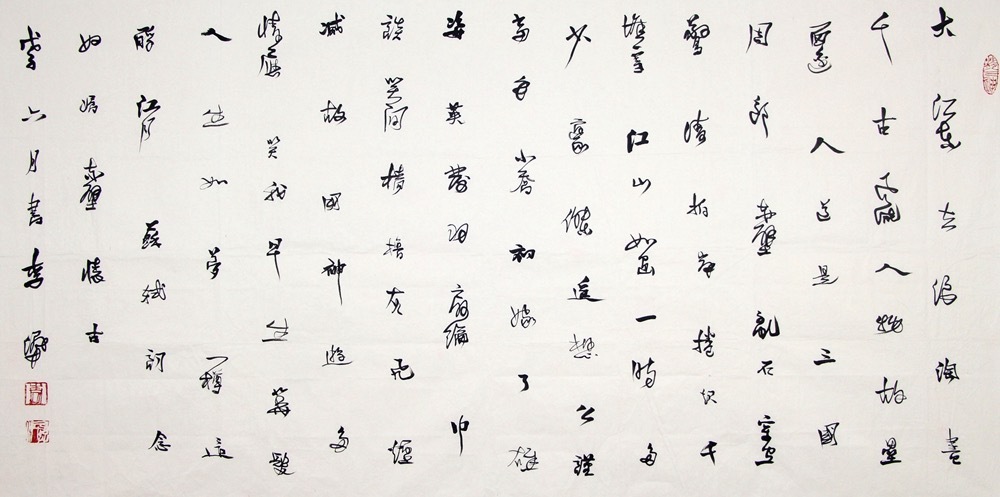 大江東去浪淘盡
千古風流人物故壘
西邊人道是三國
周郎赤壁亂石穿空
驚濤拍岸捲起千
堆雪江山如畫一時多
少豪傑遙想公瑾
當年小喬初嫁了雄
姿英發羽扇綸巾
談笑間檣櫓灰飛煙
滅故國神遊多
情應笑我早生華髮
人生如夢一樽還
酹江月蘇軾詞念
奴嬌赤壁懷古
六月書李